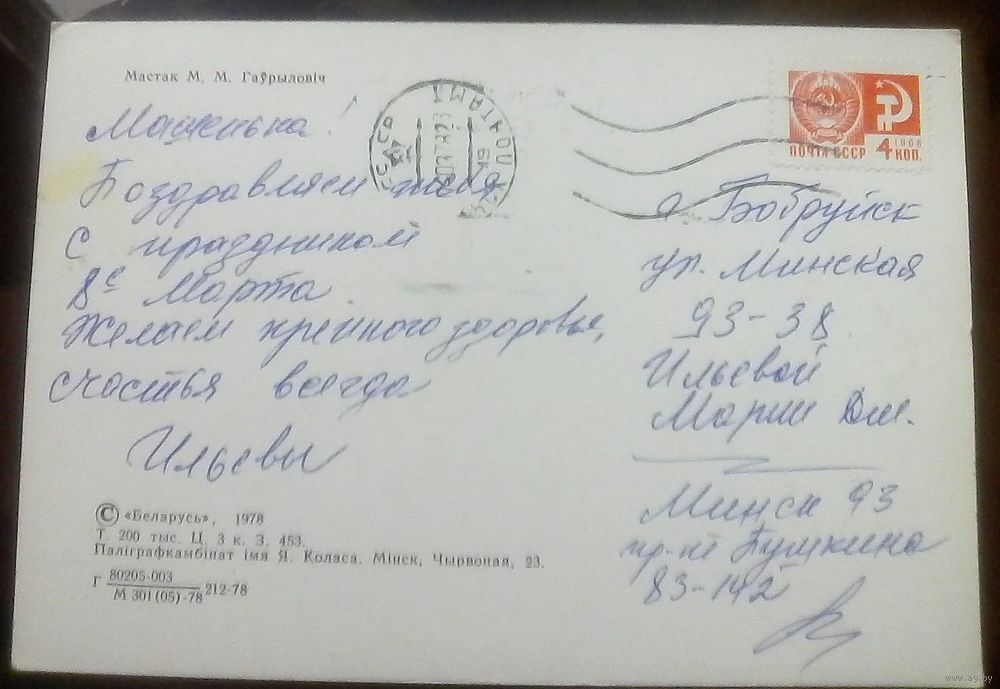 Мастак М. М. Гаўрыловіч
Машенька!
Поздравляем тебя
с праздником
8с Марта.
Желаем крепкого здоровья,
счастья всегда
Ильевы
© «Беларусь», 1978
Т. 200 тыс. Ц. 3 к. З. 453.
Паліграфкамбінат імя Я. Коласа. Мінск, Чырвоная, 23.
Г 80205-003
М 301(05)-78 212-78
1966
ПОЧТА СССР 4 КОП.
ПОЧТАМТ
г. Бобруйск
ул. Минская
93-38
Ильевой
Марии Дм.
Минск 93
пр-т Пушкина
83-142
www.ay.by